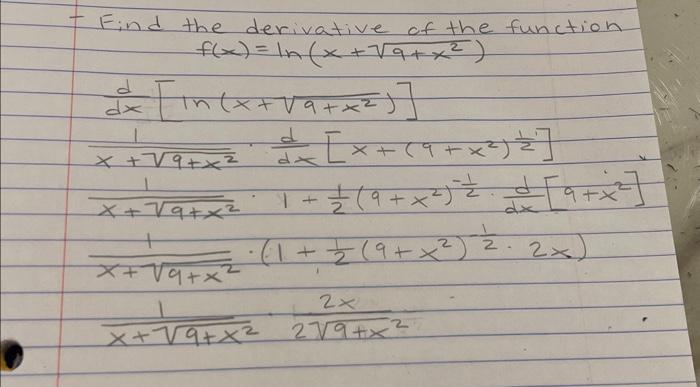 - Find the derivative of the function
f(x) = ln(x + √9+x²)
d/dx [ln(x+√9+x²)]
1/(x + √9+x²) · d/dx [x + (9 + x²)^½]
1/(x + √9+x²) · 1 + ½(9 + x²)^-½ · d/dx [9 + x²]
1/(x + √9+x²) · (1 + ½(9 + x²)^-½ · 2x)
1/(x + √9+x²) · 2x/(2√9+x²)